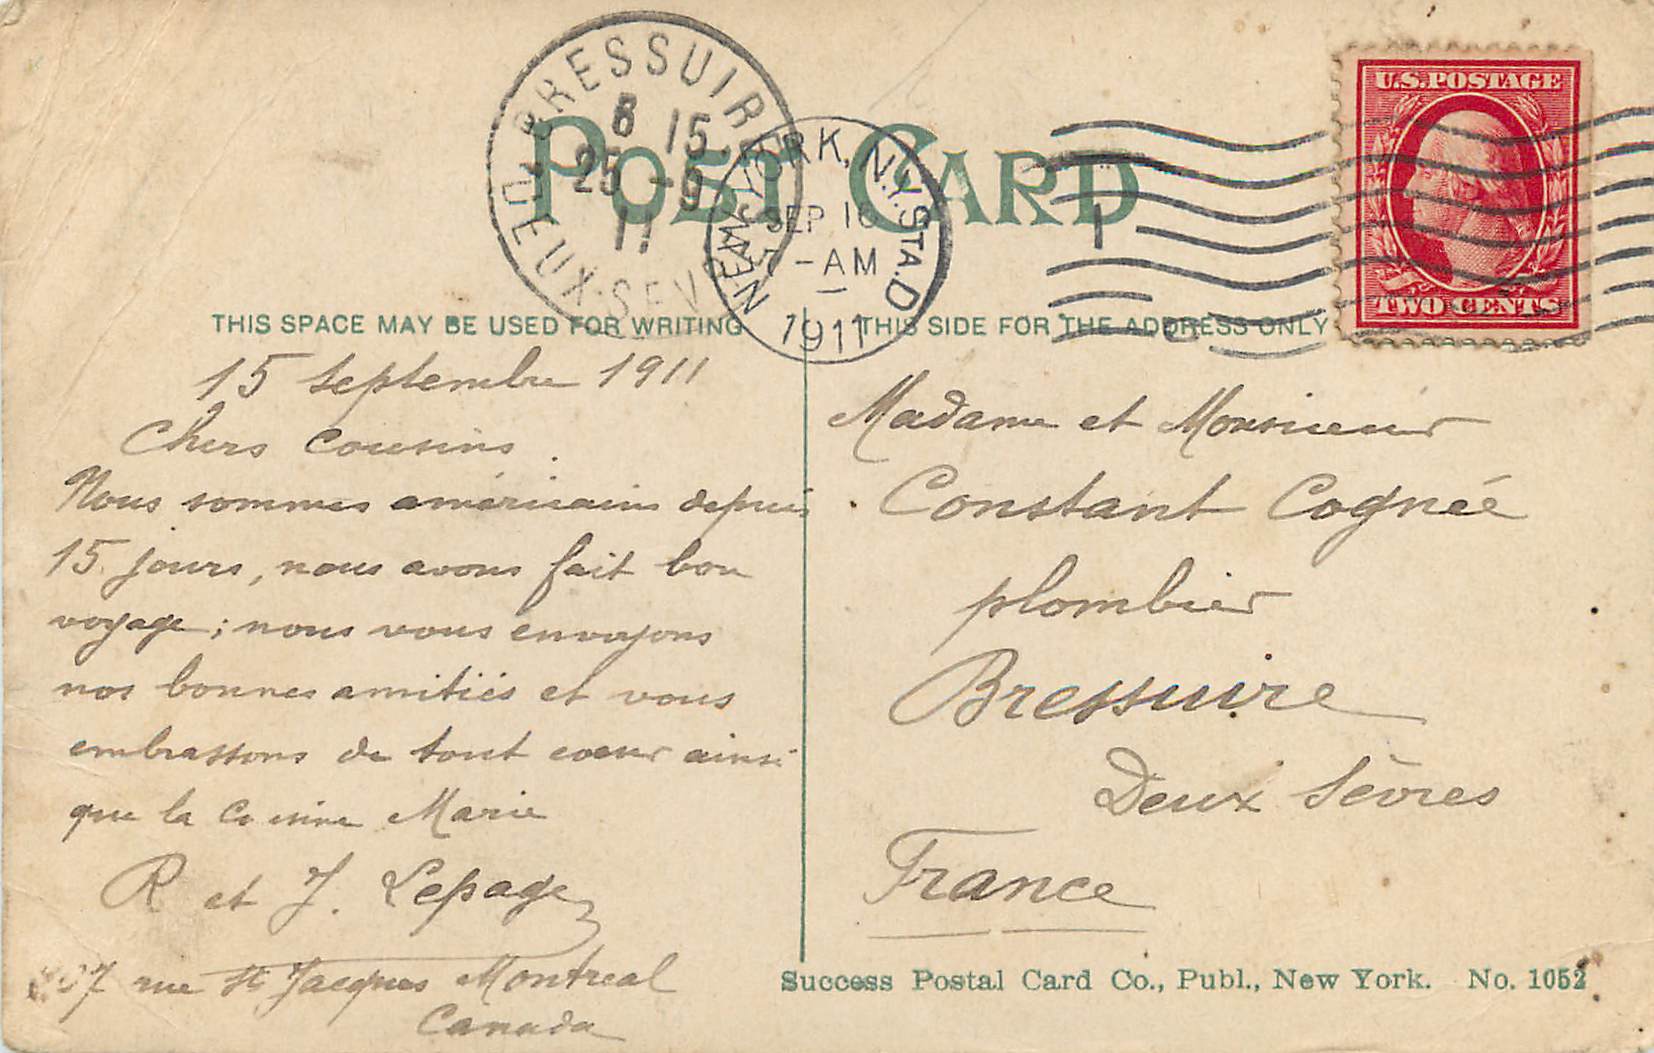 POST CARD
BRESSUIRE
DEUX-SEVRES
8 15
25 -9
11
NEW YORK, N.Y. STA. D
SEP 16
7-AM
1911
1
U.S. POSTAGE
TWO CENTS
THIS SPACE MAY BE USED FOR WRITING
THIS SIDE FOR THE ADDRESS ONLY
15 Septembre 1911
Chers cousins.
Nous sommes américains depuis
15 jours, nous avons fait bon
voyage; nous vous envoyons
nos bonnes amitiés et vous
embrassons de tout coeur ainsi
que la cousine Marie
R et J. Lepage
rue St Jacques Montreal
Canada
Madame et Monsieur
Constant Cognée
plombier
Bressuire
Deux Sèvres
France
Success Postal Card Co., Publ., New York. No. 1052